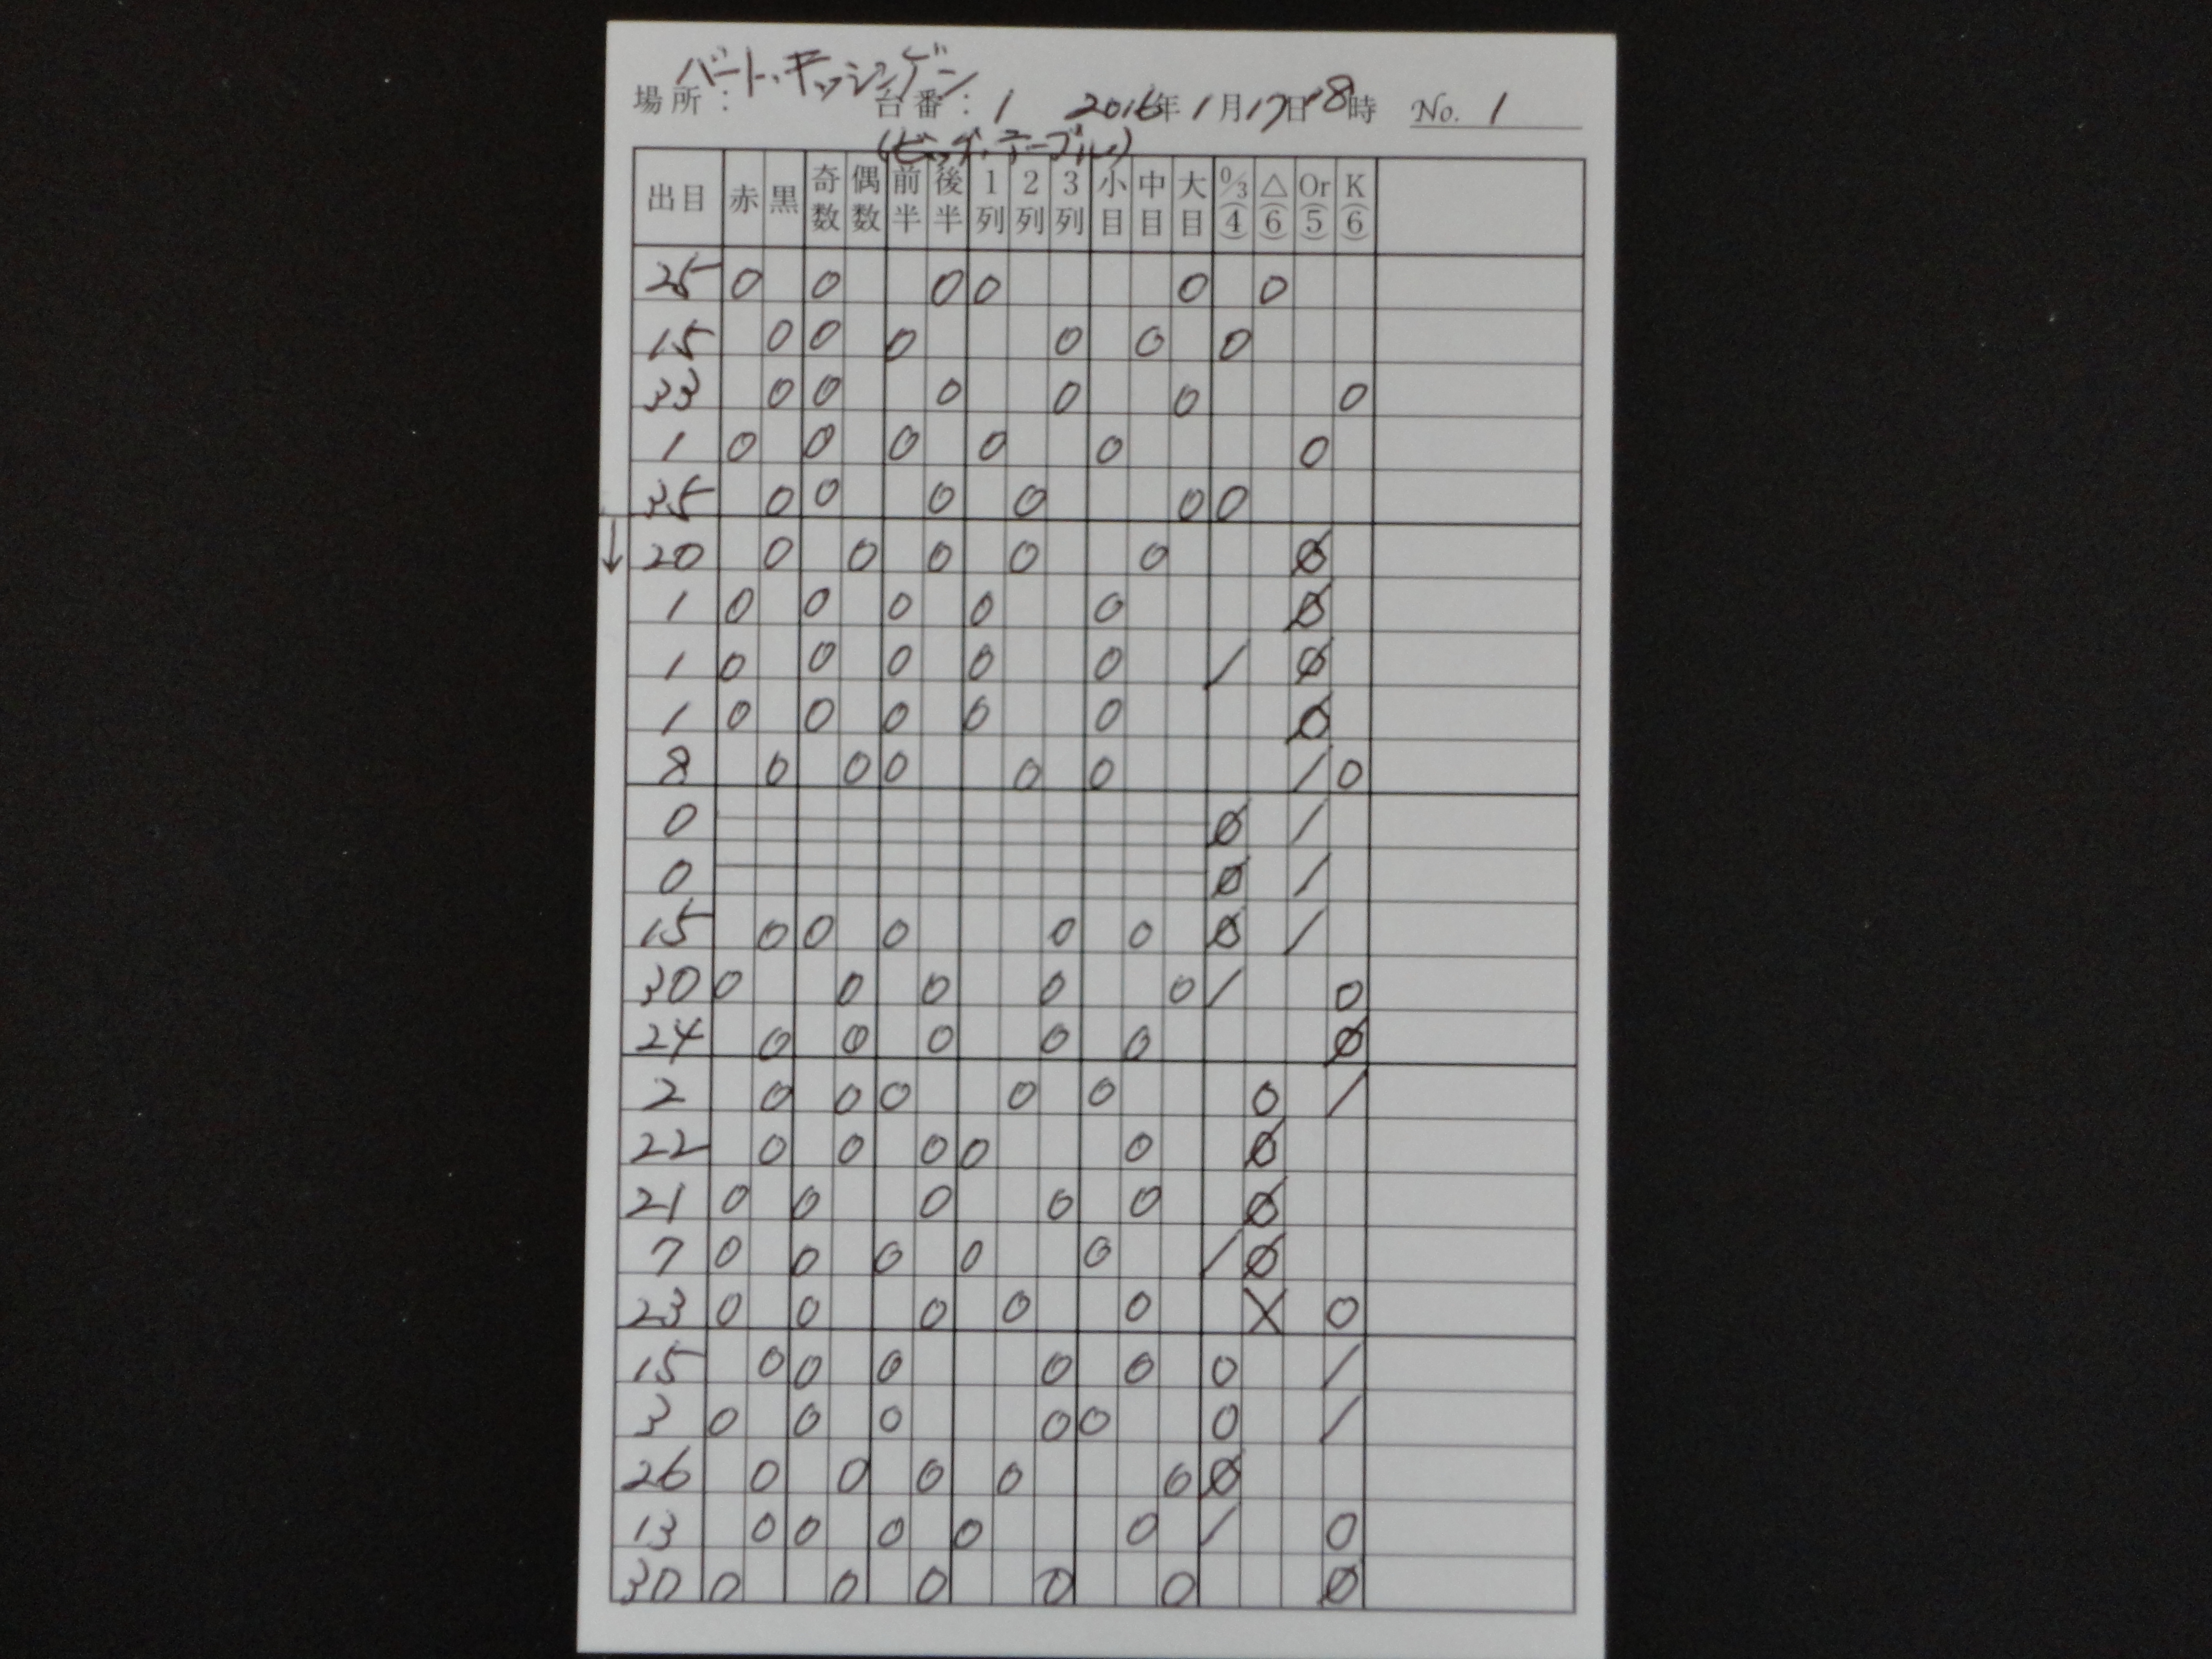 バート・キッシンゲン
場所： 台番：1 2016年1月17日18時 No. 1
(ビッグ・テーブル)
出目 赤 黒 奇数 偶数 前半 後半 1列 2列 3列 小目 中目 大目 0/3(4) △(6) Or(5) K(6)
25 0 0 0 0 0 0
15 0 0 0 0 0 0
33 0 0 0 0 0 0
1 0 0 0 0 0 0
35 0 0 0 0 0 0
↓ 20 0 0 0 0 0 Ø
1 0 0 0 0 0 Ø
1 0 0 0 0 0 / Ø
1 0 0 0 0 0 Ø
8 0 0 0 0 0 / 0
0 Ø /
0 Ø /
15 0 0 0 0 0 Ø /
30 0 0 0 0 0 / 0
24 0 0 0 0 0 Ø
2 0 0 0 0 0 0 /
22 0 0 0 0 0 Ø
21 0 0 0 0 0 Ø
7 0 0 0 0 0 / Ø
23 0 0 0 0 0 X 0
15 0 0 0 0 0 0 /
3 0 0 0 0 0 0 /
26 0 0 0 0 0 Ø
13 0 0 0 0 0 / 0
30 0 0 0 0 0 Ø